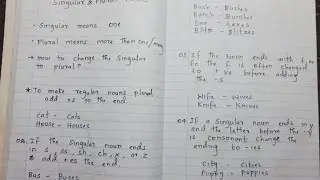 Singular & Plural
• Singular means one
• Plural means more than one/many
• How to change the Singular
to plural?
* To make regular nouns plural
add +s to the end.
Cat - Cats
House - Houses
02. If the Singular noun ends
in s, ss, sh, ch, x, or z
add +es the end.
Bus - Buses
Bush - Bushes
Bunch - Bunches
Taxes
Blitz - Blitzes
03. If the noun ends with f, or
fe the f is often changed
to +ve before adding
the -s
Wife - Wives
Knife - Knives
04. If a Singular noun ends in y
and the letter before the -y
is consonant change the
ending to -ies
City - Cities
Puppy - Puppies